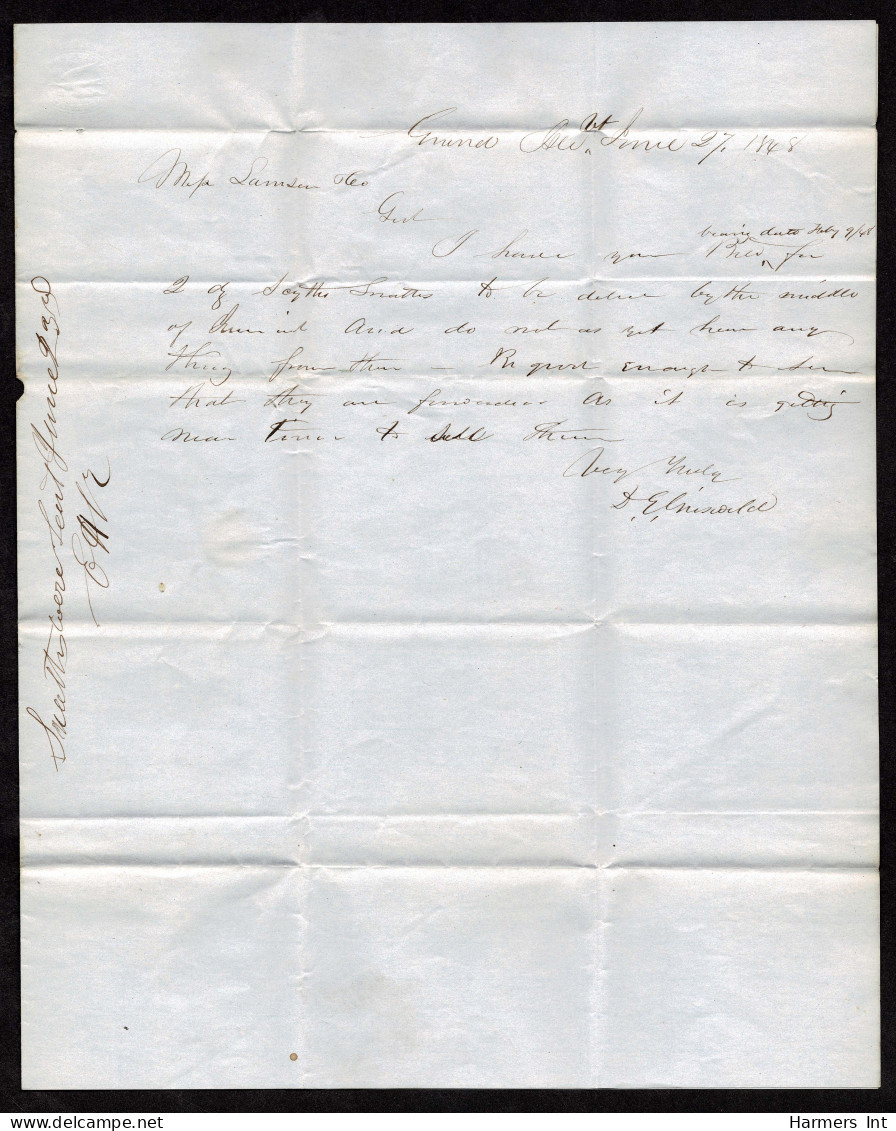 Grand Isle Vt June 27, 1848
Lamson & Co
Gent
I have your Bill, bearing date Feby 9/48 for
2 dz Scythe Snaths to be deliver by the middle
of June inst And do not as yet hear any
thing from them – Be good enough to see
that they are forwarded As it is getting
near time to sell them
Very Truly
D. E. Griswold
Snaths were Sent June
Harmers Int